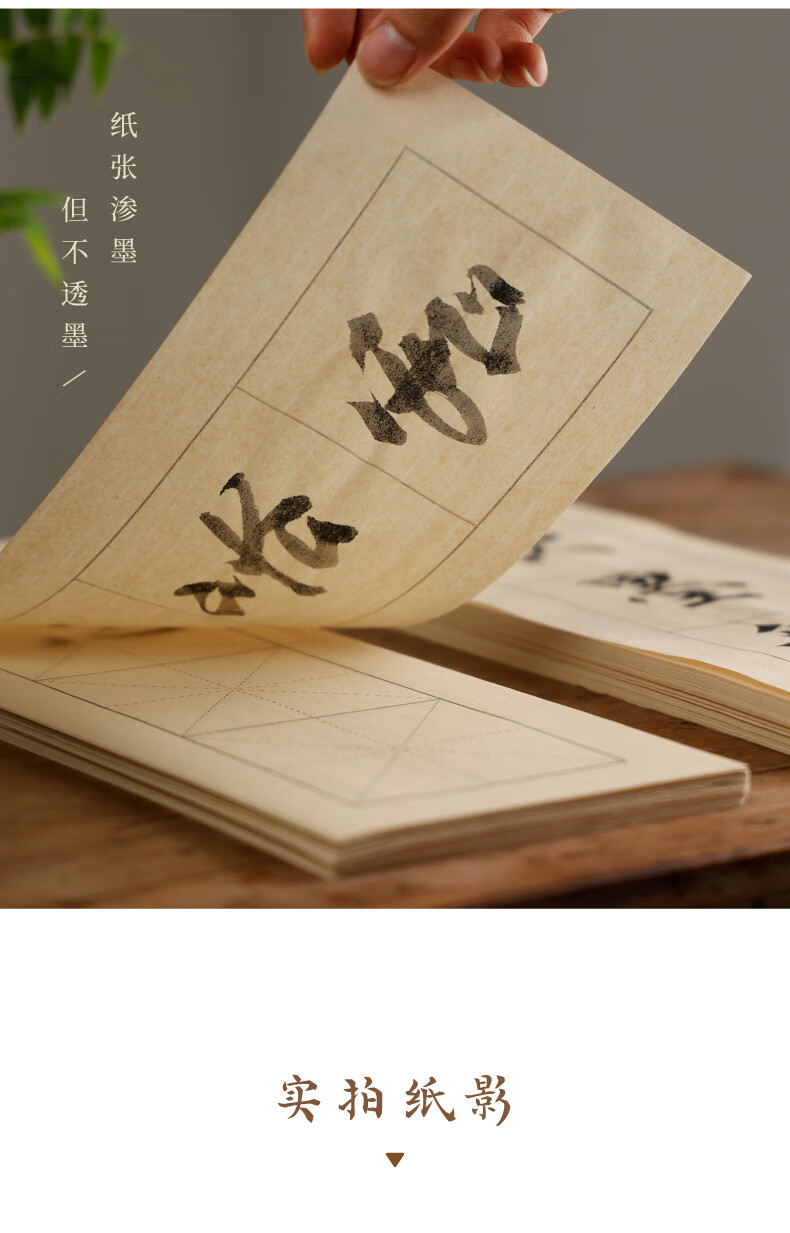 纸张渗墨
但不透墨/
实拍纸影